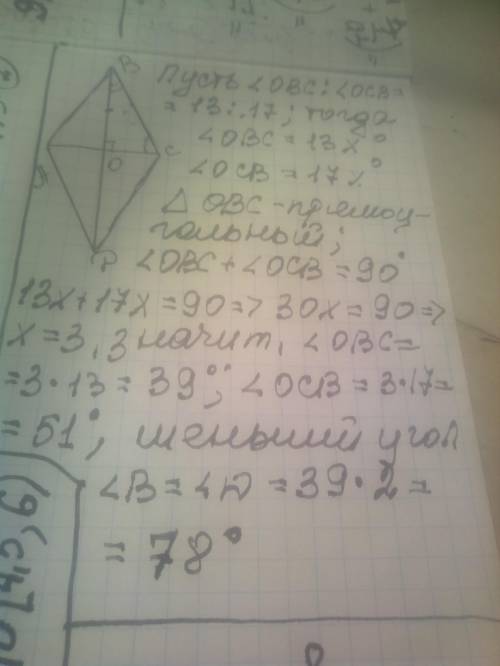 B
C
O
D
Пусть ∠OBC:∠OCB=
=13:17; тогда
∠OBC=13x°
∠OCB=17x°
△ OBC-прямоу-
гольный;
∠OBC+∠OCB=90°
13x+17x=90=> 30x=90=>
x=3, значит, ∠OBC=
=3·13=39°; ∠OCB=3·17=
=51°; меньший угол
∠B=∠D=39·2=
=78°